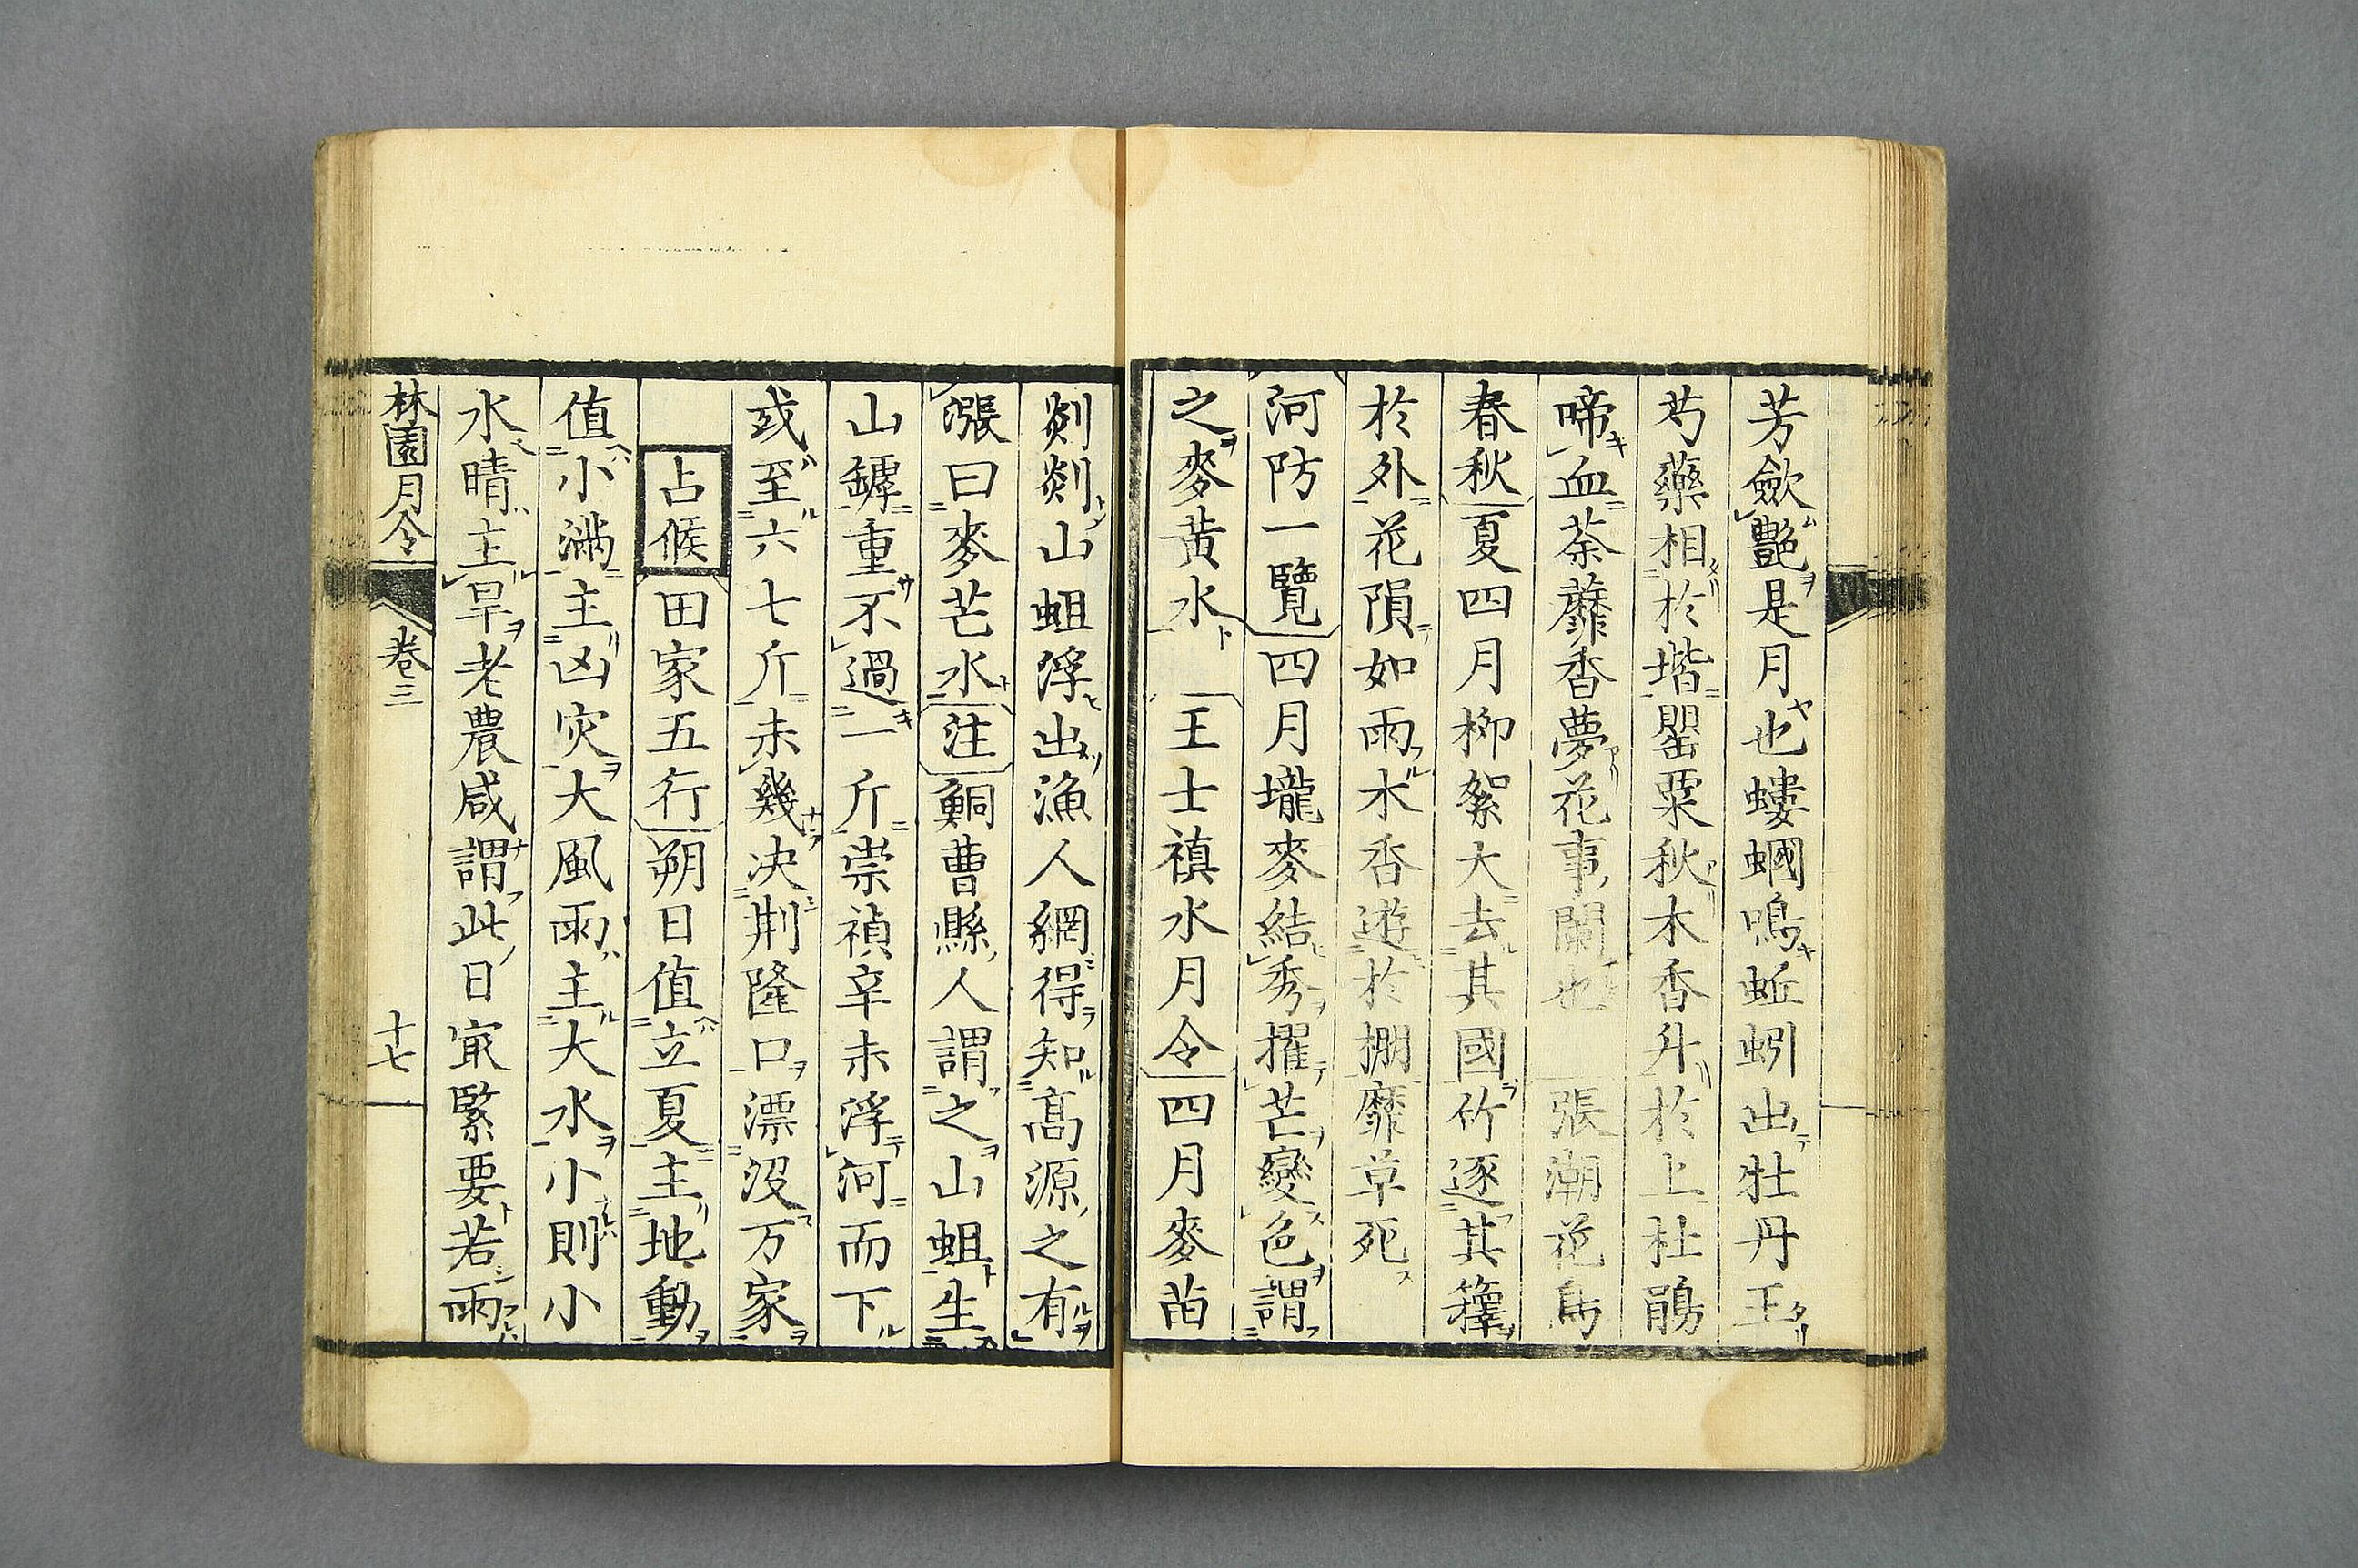 芳歛艷是月也螻蟈鳴蚯蚓出牡丹王
芍藥相於堦罌粟秋木香升於上杜鵑
啼血荼蘼香夢花事闌也 張潮花鳥
春秋夏四月柳絮大去其國竹逐其籜
於外花隕如雨木香遊於棚靡草死
河防一覽四月壠麥結秀擢芒變色謂
之麥黃水 王士禛水月令四月麥苗
剡剡山蛆浮出漁人網得知高源之有
漲曰麥芒水注鮦曹縣人謂之山蛆生
山罅重不過一斤崇禎辛未浮河而下
或至六七斤未幾决荆隆口漂沒万家
占候田家五行朔日值立夏主地動
值小滿主凶灾大風雨主大水小則小
水晴主旱老農咸謂此日㝡緊要若雨
林園月令 卷三 十七